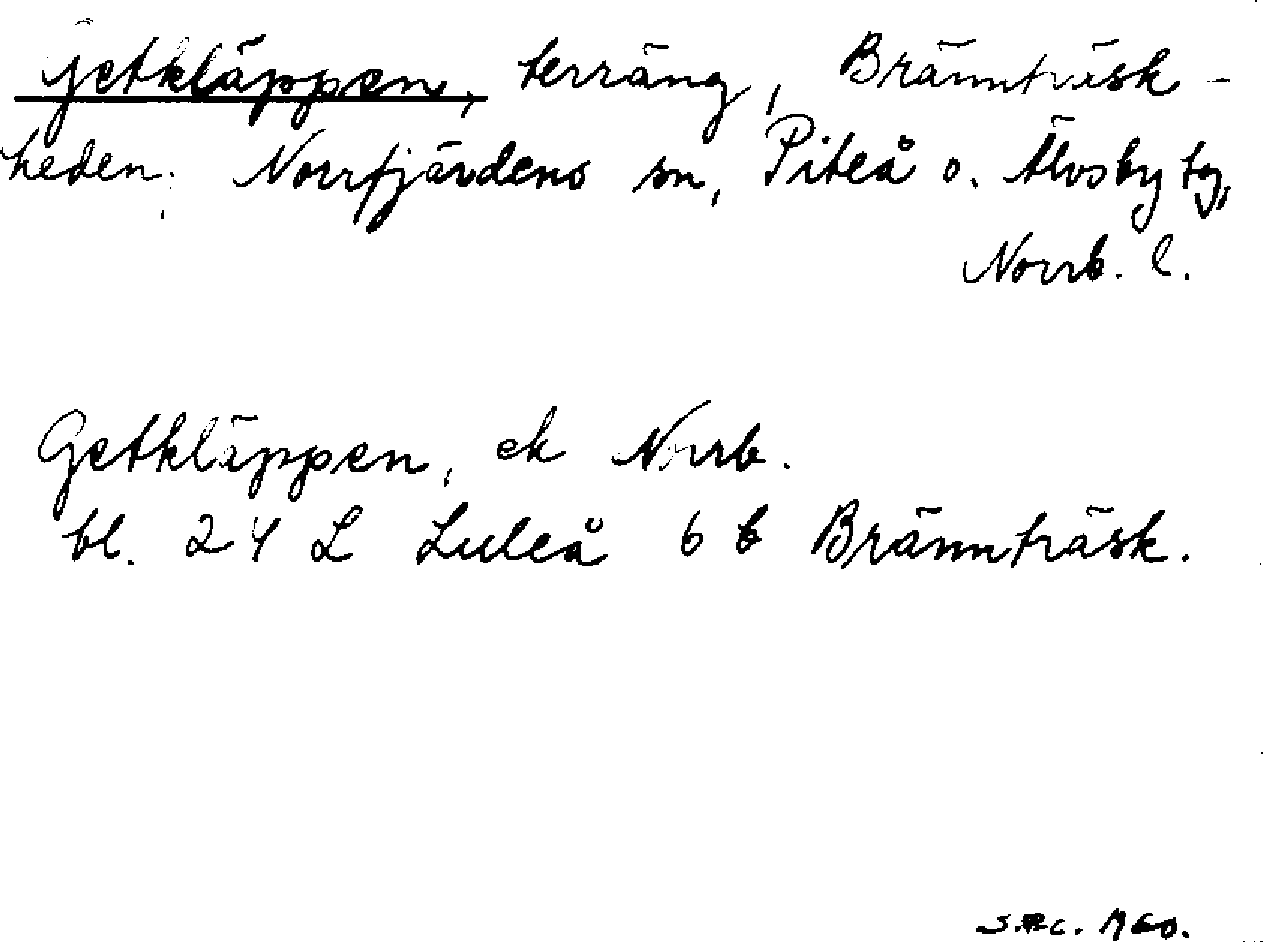 Getkläppen, terräng, Brännträsk-
heden, Norrfjärdens sn, Piteå o. Älvsby tg,
Norrb. l.
Getkläppen, ek Norrb.
bl. 24 L Luleå 6 b Brännträsk.
1960.